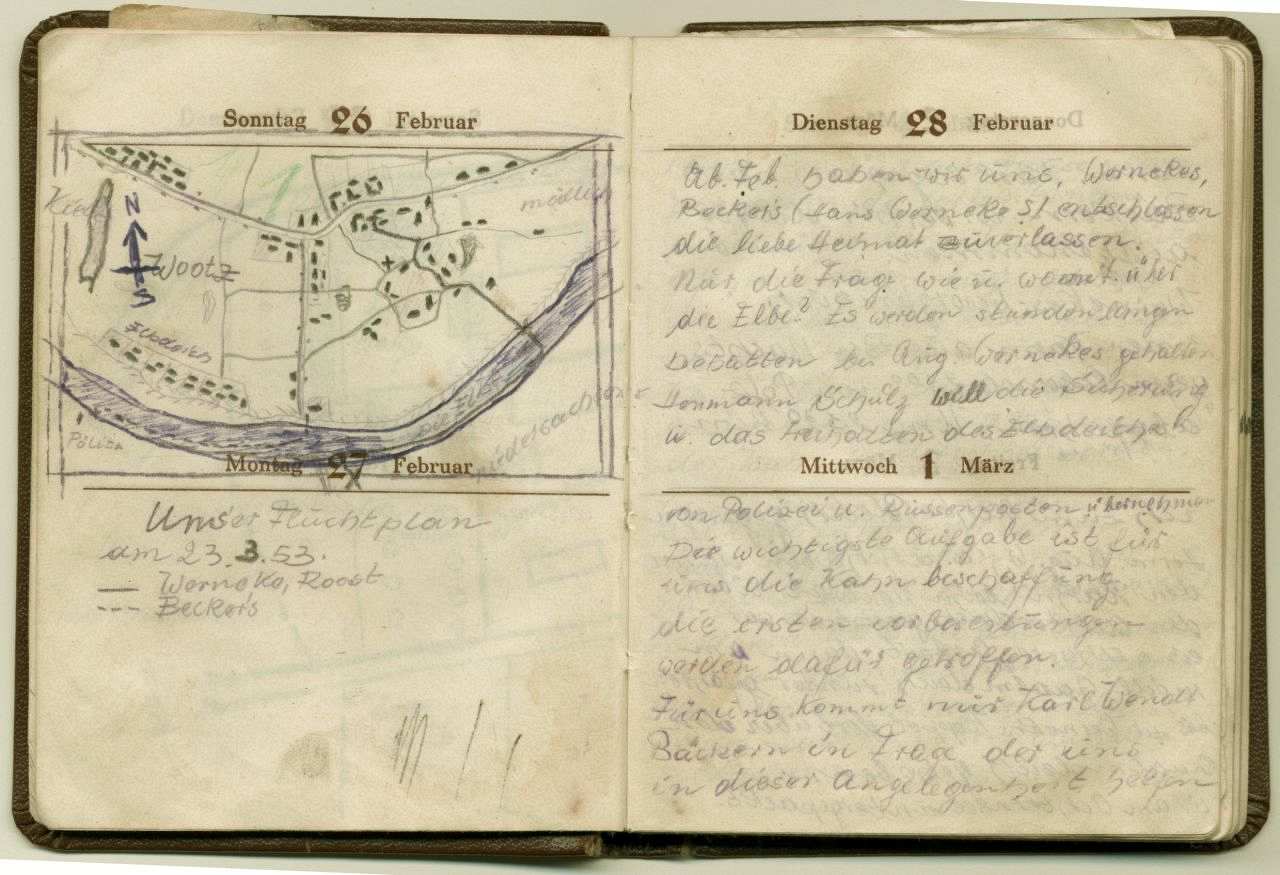 Sonntag 26 Februar
N
Wootz
mödlich
Elbdeich
S
Die Elbe
Niedersachsen
Montag 27 Februar
Unser Fluchtplan
am 23.3.53.
Werneke, Roost
Beckers
Dienstag 28 Februar
Ab. Feb haben wir uns, Wernekes,
Beckers (Hans Werneke S) entschlossen
die liebe Heimat zuverlassen.
Nur die Frage wie u. womit über
die Elbe? Es werden stundenlangen
Debatten bei Aug. Wernekes gehalten
Hermann Schulz will die Sicherung
u. das Freihalten des Elbdeiches
Mittwoch 1 März
von Polizei u. Russenposten übernehmen
Die wichtigste Aufgabe ist für
uns die Kahn beschaffung
die ersten vorbereitungen
werden dafür getroffen.
Für uns kommt nur Karl Wendt
Bäckern in Frage der uns
in dieser Angelegenheit helfen